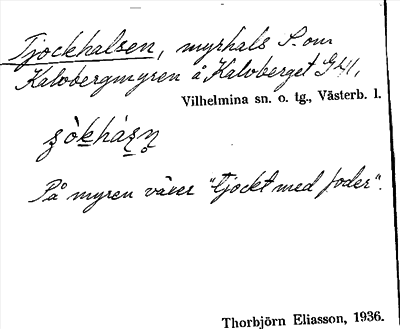 Tjockhalsen, myrhals S. om
Kalvbergmyren å Kalvberget G 41,
Vilhelmina sn. o. tg., Västerb. l.
På myren växer "tjockt med foder".
Thorbjörn Eliasson, 1936.